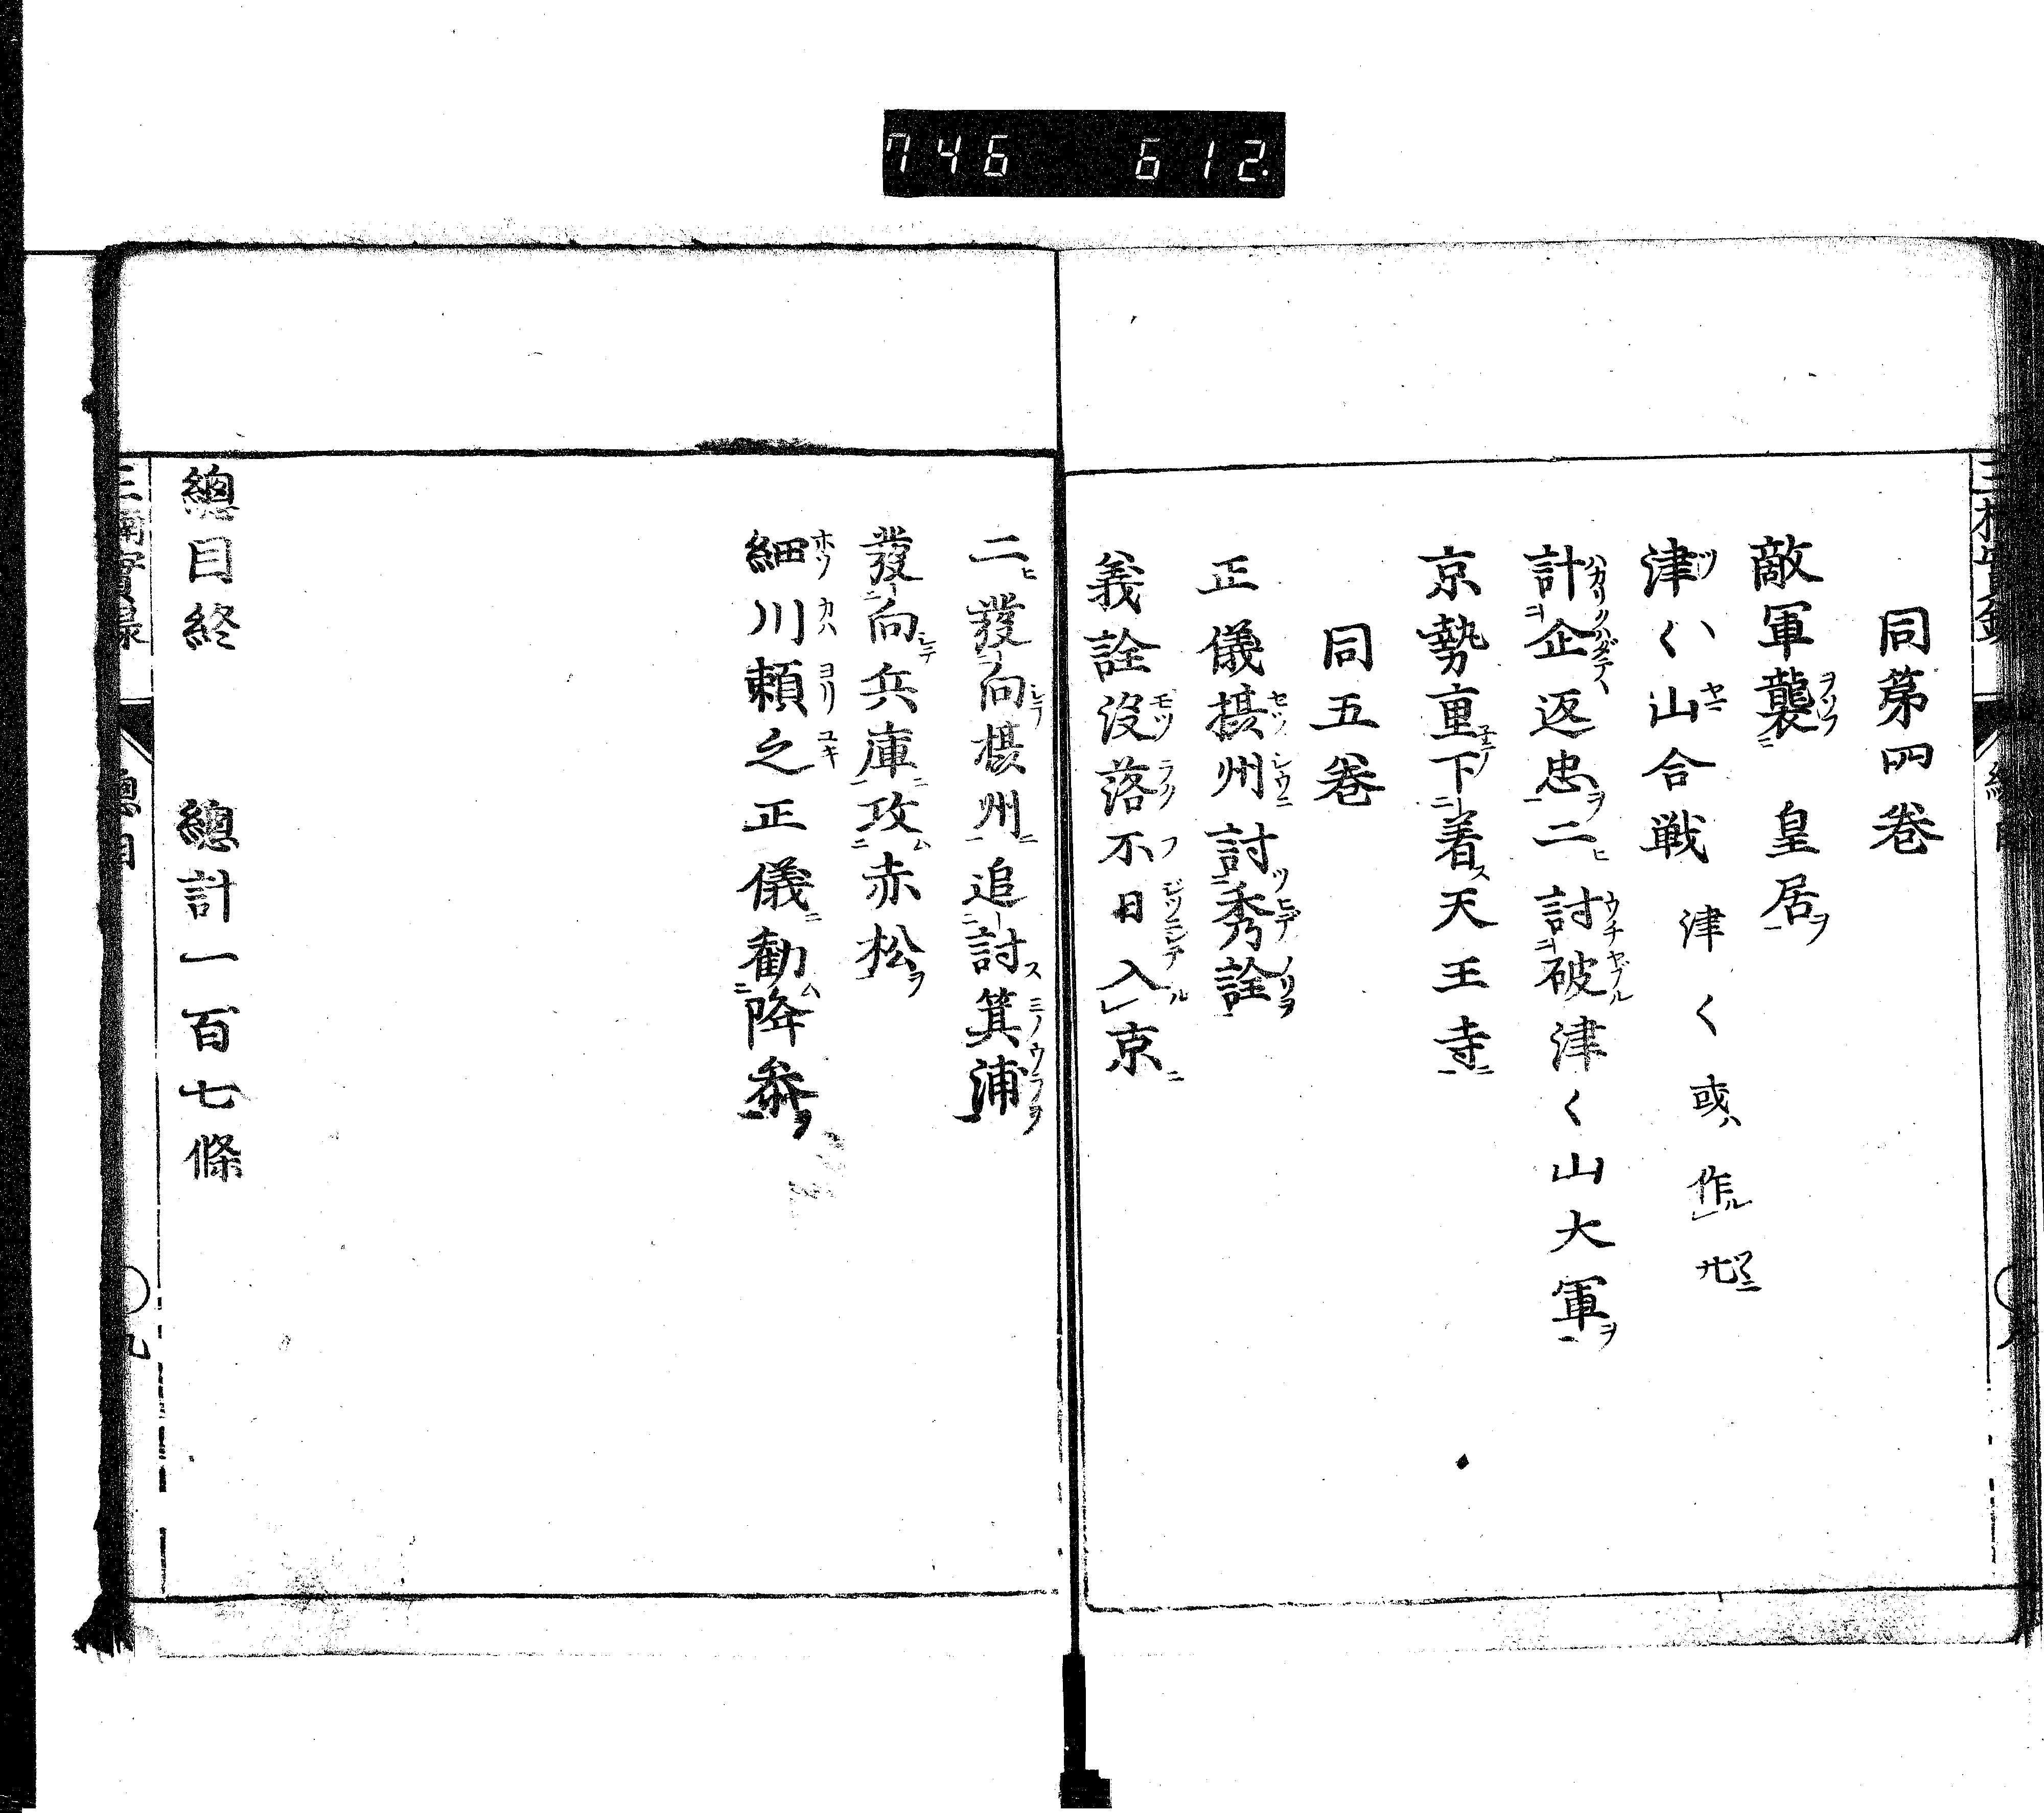 746 612.
同第四巻
敵軍襲皇居
津〱山合戦 津〱或作卅
計企返忠二討破津〱山大軍
京勢重下着天王寺
同五巻
正儀摂州討秀詮
義詮没落不日入京
二發向摂州追討箕浦
發向兵庫攻赤松
細川頼之正儀勧降参
總目終 總計一百七條
三楠實録 總目 九